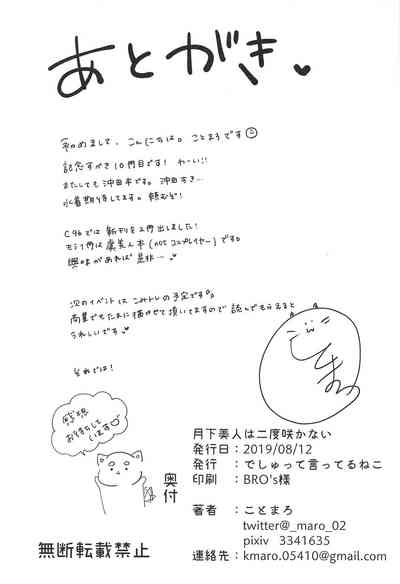 あとがき♥
初めまして、こんにちは。ことまろです☺
記念すべき10冊目です! わーい!!
またしても沖田本です。沖田すき…
水着期待してます。頼むぞ!
C96では新刊を2冊出しました!
もう1冊は虞美人本(notコスプレイヤー)です。
興味があれば是非…♥
次のイベントはこみトレの予定です。
商業でもたまに描かせて頂いてますので読んでもらえると
うれしいです♥
それでは!
感想
お待ちして
います
奥付
月下美人は二度咲かない
発行日:2019/08/12
発行 : でしゅって言ってるねこ
印刷 : BRO's様
著者 : ことまろ
twitter@_maro_02
pixiv 3341635
連絡先:kmaro.05410@gmail.com
無断転載禁止